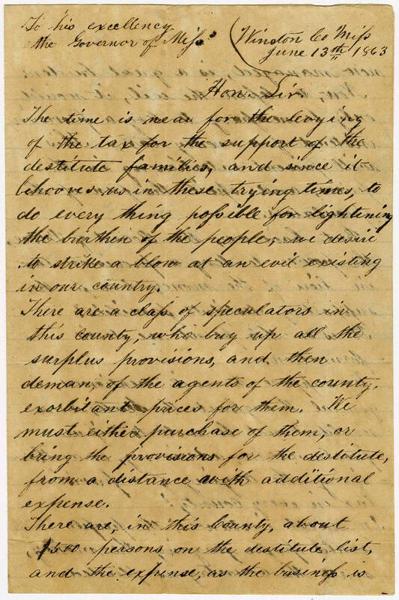 To his excellency
the Governor of Miss
Winston Co Miss
June 13th 1863
Hon. Sir
The time is near for the levying
of the tax for the support of the
destitute families, and since it
behooves us in these trying times, to
do every thing possible for lightening
the burthen of the people, we desire
to strike a blow at an evil existing
in our country.
There are a class of speculators in
this county, who buy up all the
surplus provisions, and then
deman, of the agents of the county,
exorbitant prices for them. We
must either purchase of them, or
bring the provisions for the destitute,
from a distance with additional
expense.
There are, in this County, about
1500 persons on the destitute list,
and the expense, as the business is